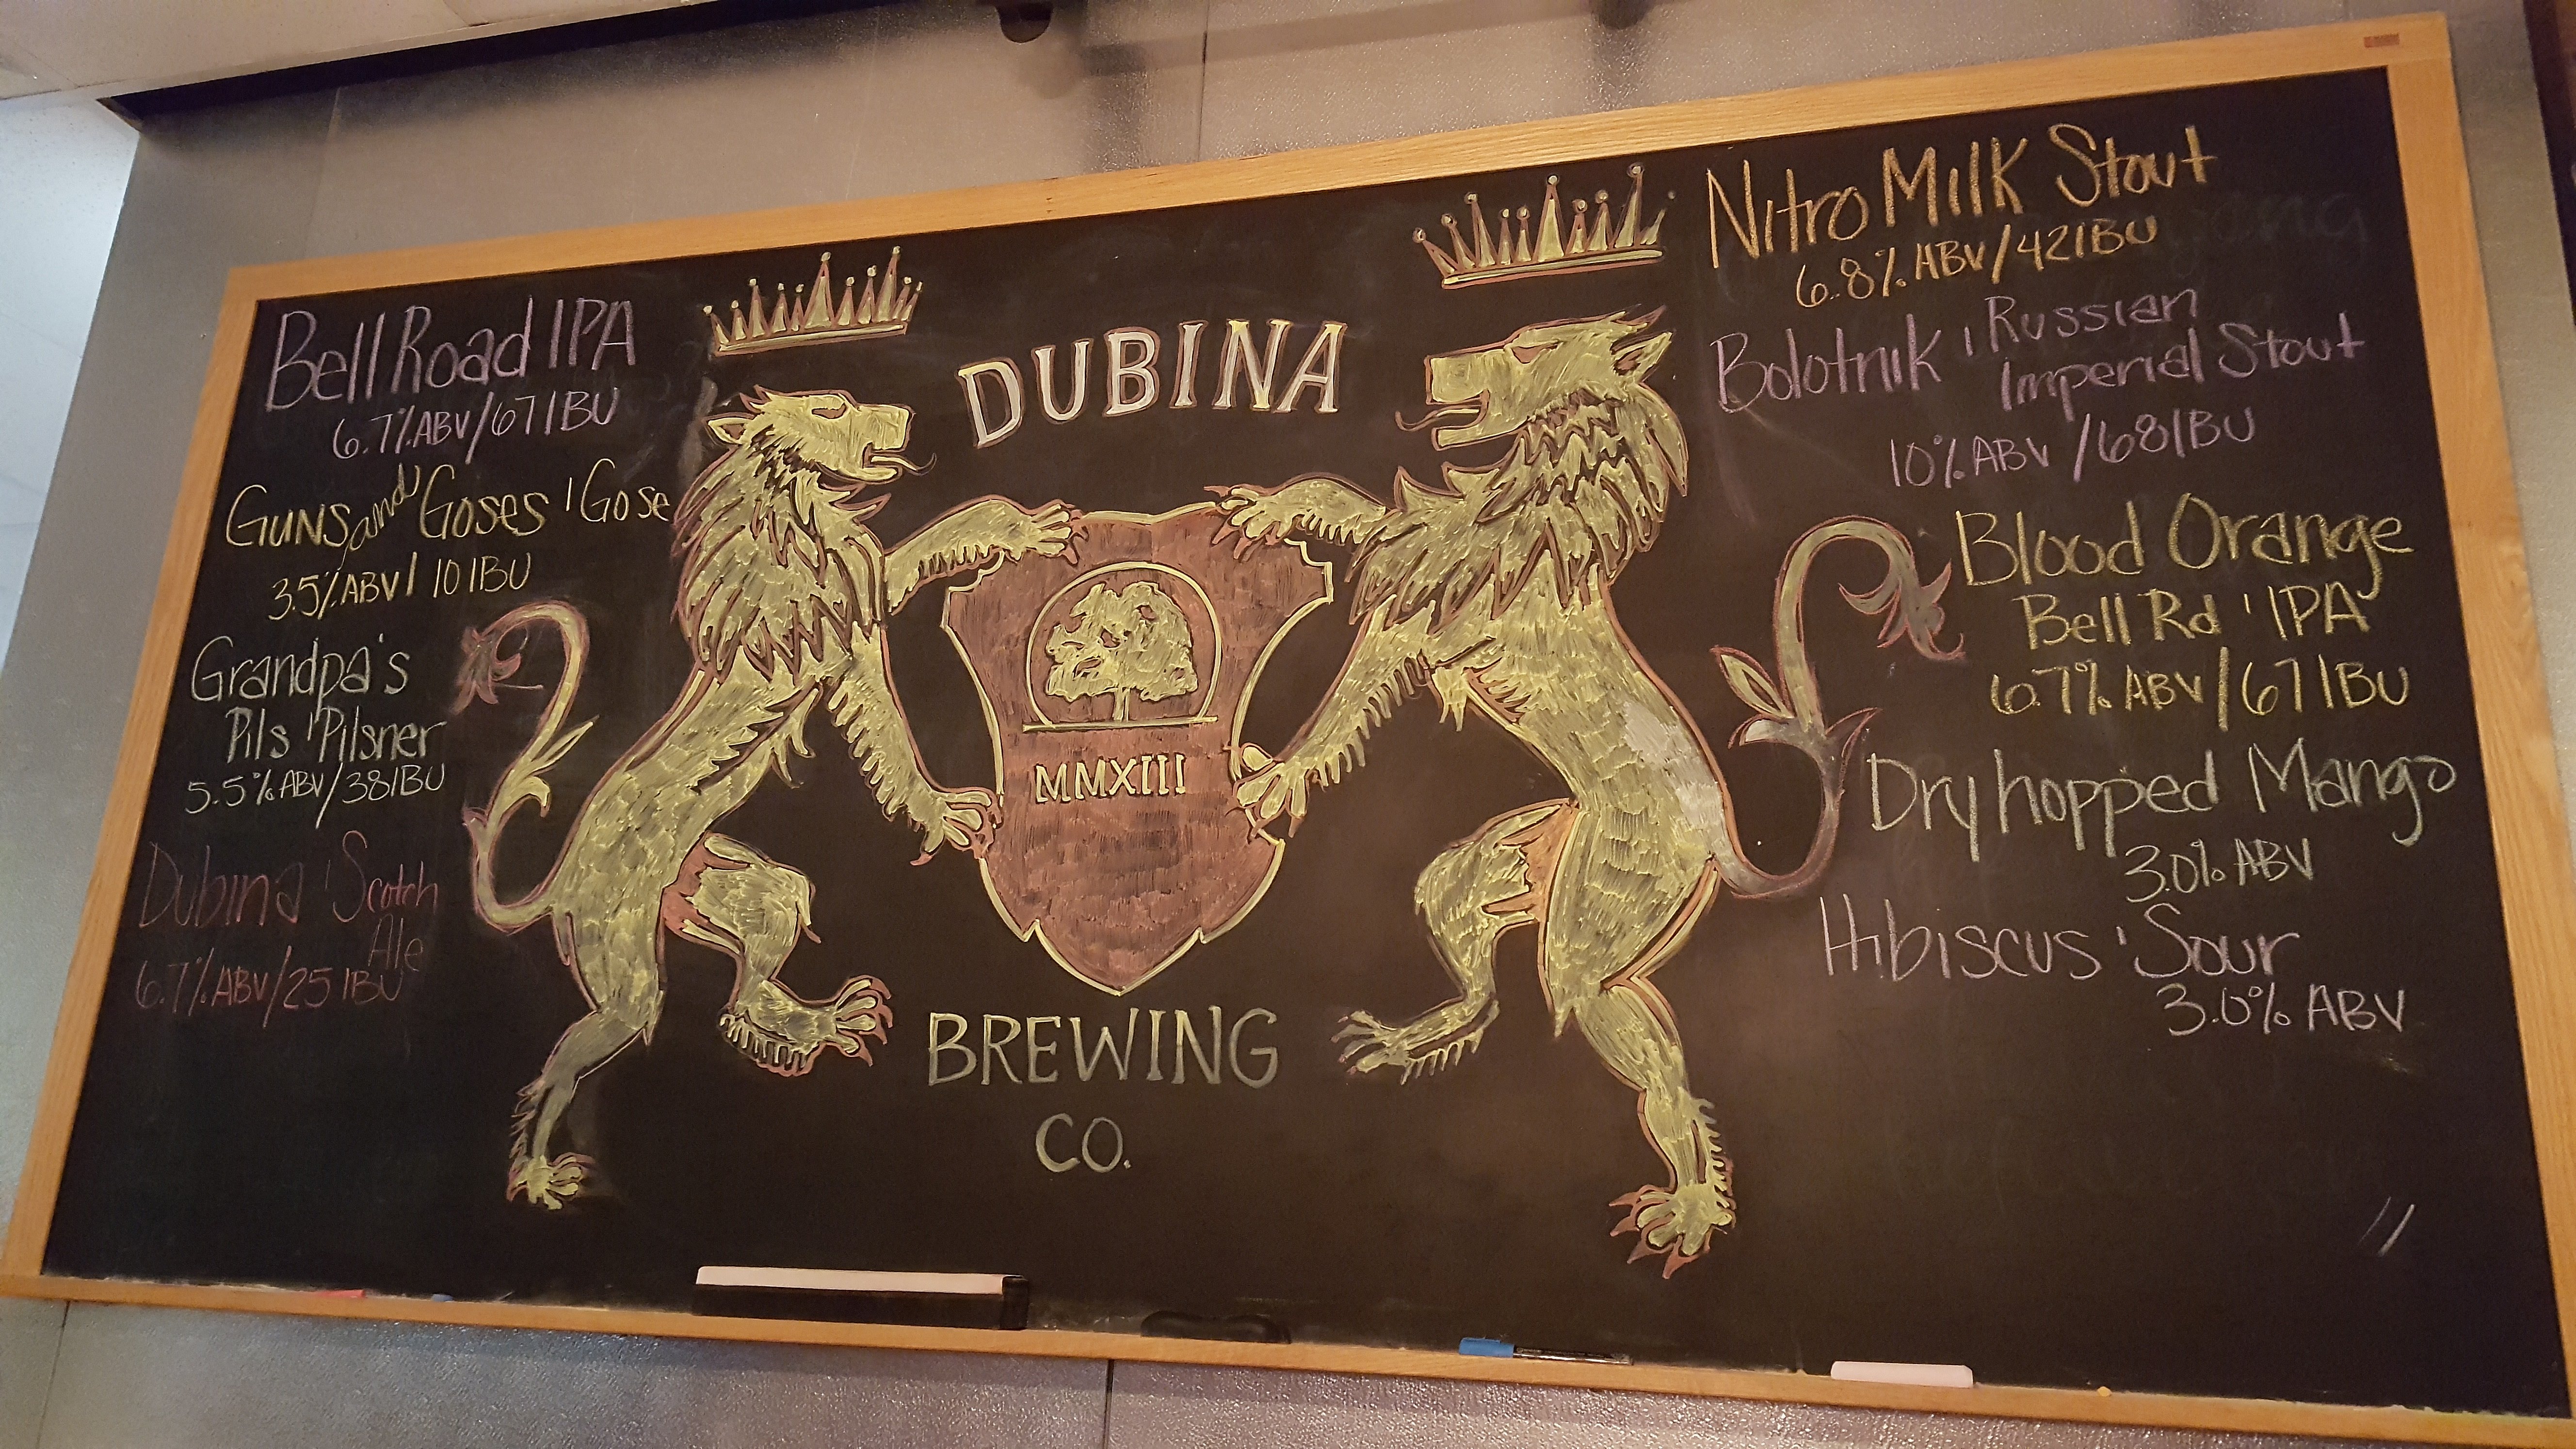 Bell Road IPA
6.7% ABV/67 IBU
GUNS and Goses | Gose
3.5% ABV | 10 IBU
Grandpa's
Pils | Pilsner
5.5% ABV/38 IBU
Dubina | Scotch
Ale
6.7% ABV/25 IBU
DUBINA
MMXIII
BREWING
CO.
Nitro Milk Stout
6.8% ABV/42 IBU
Bolotnik | Russian
Imperial Stout
10% ABV /68 IBU
Blood Orange
Bell Rd | IPA
6.7% ABV/67 IBU
Dry hopped Mango
3.0% ABV
Hibiscus | Sour
3.0% ABV